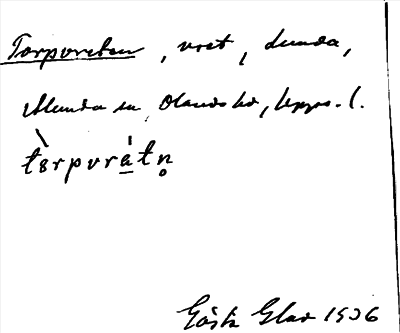 Torpvreten, vret, Lunda,
Munda sn, Ölands hd, Upps. l.
tɞrpvrátn̥
Gösta Elav 1936